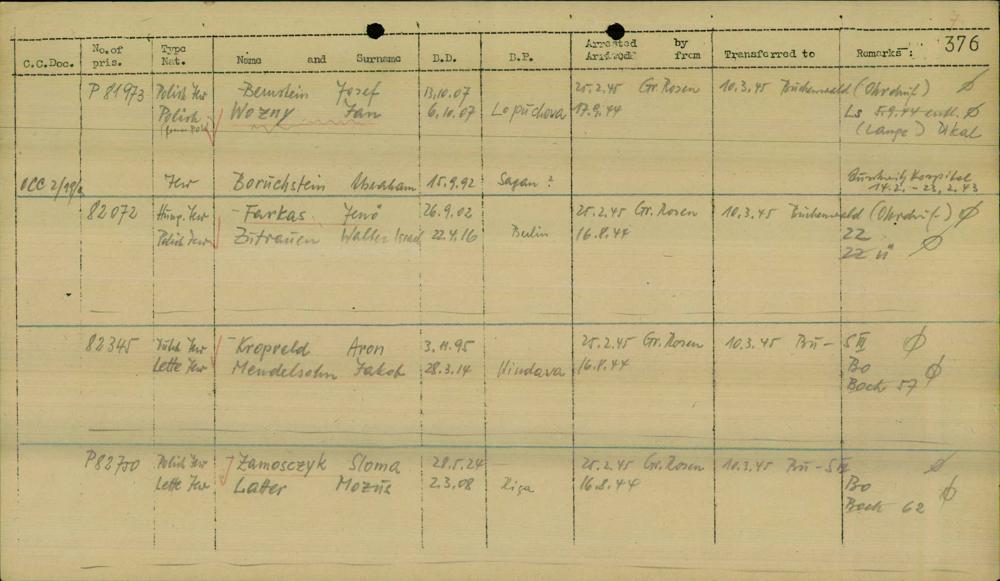 376
C.C.Doc. No.of pris. Type Nat. Name and Surname B.D. B.P. Arrested Arrived by from Transferred to Remarks :
P 81973 Polish Jew Bernstein Josef 13.10.07 25.2.45 Gr. Rosen 10.3.45 Buchenwald (Ohrdruf) Ø
Polish Wozny Jan 6.10.07 Lopuchova 17.9.44 Ls 5.9.44 entl. Ø
(Lange)
OCC 2/19/ Jew Boruchstein Abraham 15.9.92 Sagan ?
14.2. - 23.2.43
82072 Hung. Jew Farkas Jenö 26.9.02 25.2.45 Gr. Rosen 10.3.45 Buchenwald (Ohrdruf) Ø
Polish Jew Zutrauen Walter Israel 22.4.16 Berlin 16.8.44 22
22 ü Ø
82345 Jew Kropveld Aron 3.11.95 25.2.45 Gr. Rosen 10.3.45 Bu - S III Ø
Lette Jew Mendelsohn Jakob 28.3.14 Windava 16.8.44 Bo Ø
Bock 57
P 82730 Polish Jew Zamosczyk Sloma 28.5.24 25.2.45 Gr. Rosen 10.3.45 Bu - S III Ø
Lette Jew Latter Mozus 2.3.08 Riga 16.8.44 Bo Ø
Bock 62